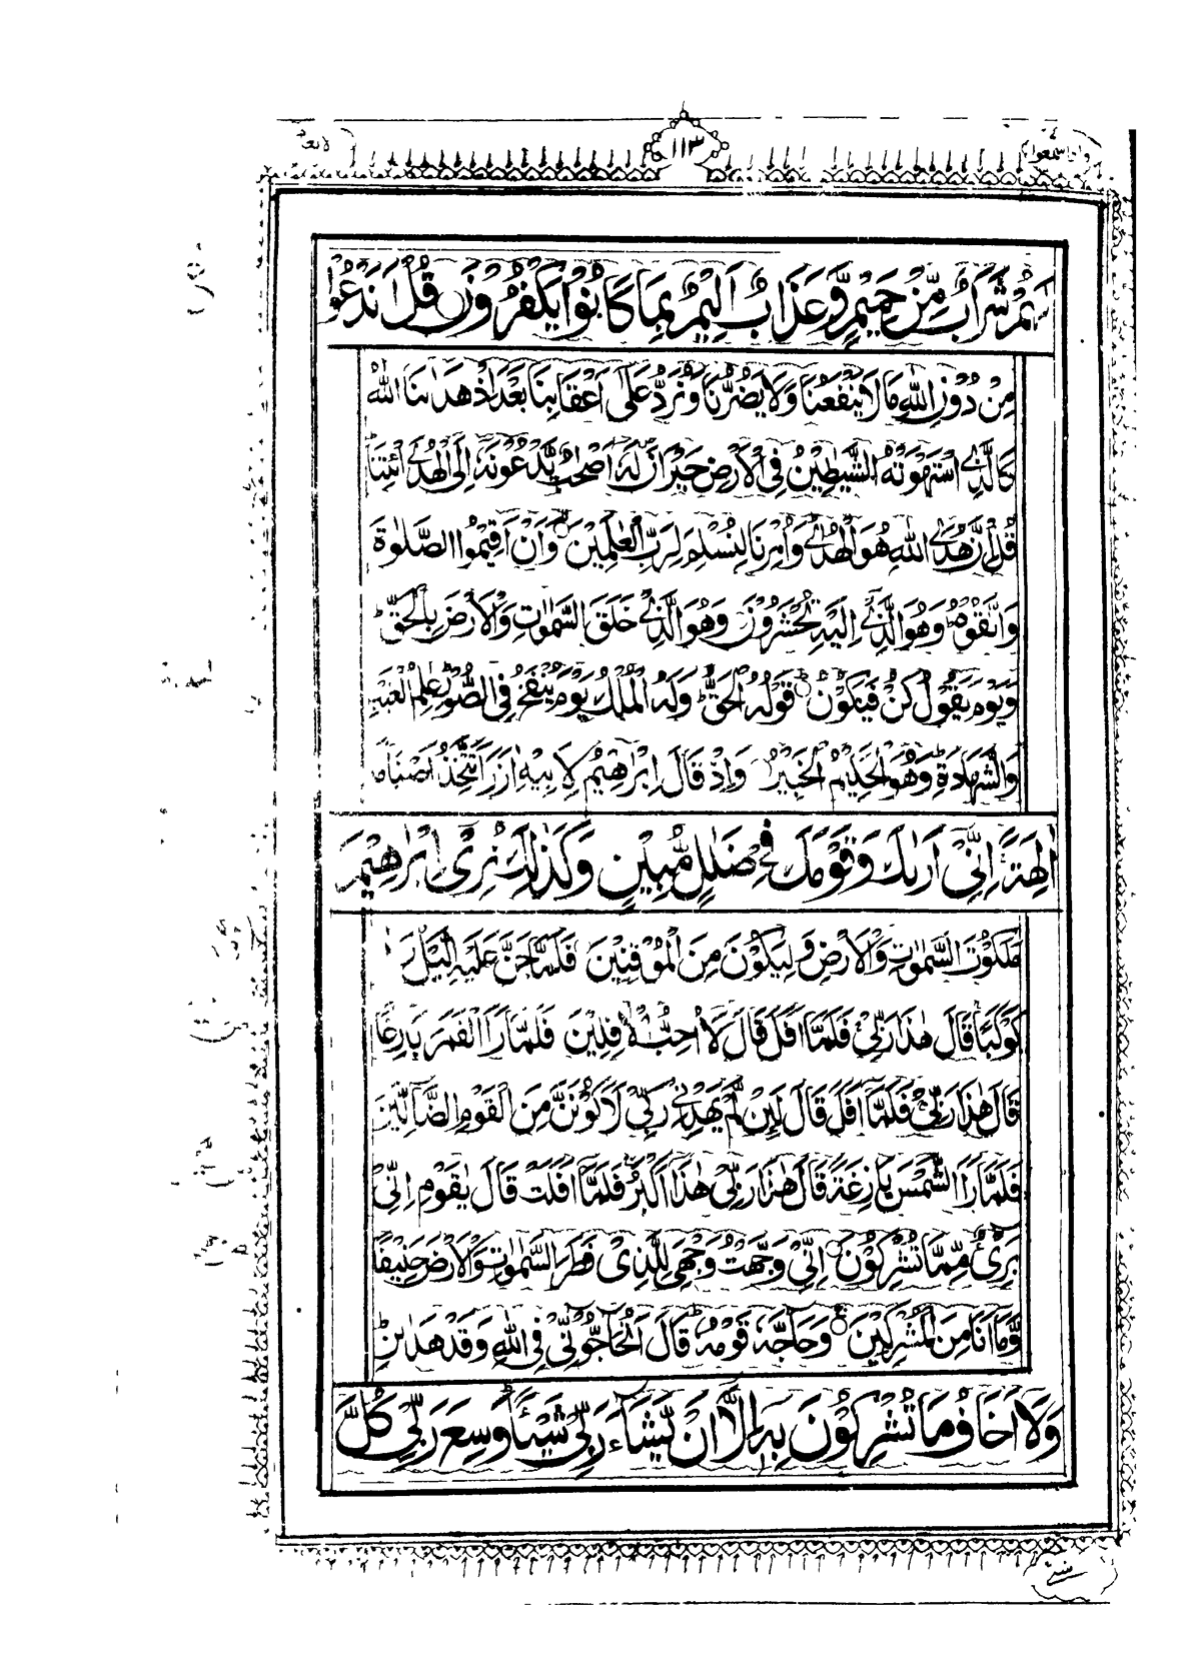 واذاسمعوا
١١٣
لَهُمْ شَرَابٌ مِّنْ حَمِيْمٍ وَّعَذَابٌ اَلِيْمٌ بِمَا كَانُوْا يَكْفُرُوْنَ قُلْ اَنَدْعُوْا
مِنْ دُوْنِ اللّٰهِ مَا لَا يَنْفَعُنَا وَلَا يَضُرُّنَا وَنُرَدُّ عَلٰٓى اَعْقَابِنَا بَعْدَ اِذْ هَدٰىنَا اللّٰهُ
كَالَّذِى اسْتَهْوَتْهُ الشَّيٰطِيْنُ فِى الْاَرْضِ حَيْرَانَ لَهٗٓ اَصْحٰبٌ يَّدْعُوْنَهٗٓ اِلَى الْهُدَى ائْتِنَا
قُلْ اِنَّ هُدَى اللّٰهِ هُوَ الْهُدٰى وَاُمِرْنَا لِنُسْلِمَ لِرَبِّ الْعٰلَمِيْنَ وَاَنْ اَقِيْمُوا الصَّلٰوةَ
وَاتَّقُوْهُ وَهُوَ الَّذِىْٓ اِلَيْهِ تُحْشَرُوْنَ وَهُوَ الَّذِىْ خَلَقَ السَّمٰوٰتِ وَالْاَرْضَ بِالْحَقِّ
وَيَوْمَ يَقُوْلُ كُنْ فَيَكُوْنُ قَوْلُهُ الْحَقُّ وَلَهُ الْمُلْكُ يَوْمَ يُنْفَخُ فِى الصُّوْرِ عٰلِمُ الْغَيْبِ
وَالشَّهَادَةِ وَهُوَ الْحَكِيْمُ الْخَبِيْرُ وَاِذْ قَالَ اِبْرٰهِيْمُ لِاَبِيْهِ اٰزَرَ اَتَتَّخِذُ اَصْنَامًا
اٰلِهَةً اِنِّىْٓ اَرٰىكَ وَقَوْمَكَ فِىْ ضَلٰلٍ مُّبِيْنٍ وَكَذٰلِكَ نُرِىْٓ اِبْرٰهِيْمَ
مَلَكُوْتَ السَّمٰوٰتِ وَالْاَرْضِ وَلِيَكُوْنَ مِنَ الْمُوْقِنِيْنَ فَلَمَّا جَنَّ عَلَيْهِ الَّيْلُ رَاٰ
كَوْكَبًا قَالَ هٰذَا رَبِّىْ فَلَمَّآ اَفَلَ قَالَ لَآ اُحِبُّ الْاٰفِلِيْنَ فَلَمَّا رَاَ الْقَمَرَ بَازِغًا
قَالَ هٰذَا رَبِّىْ فَلَمَّآ اَفَلَ قَالَ لَئِنْ لَّمْ يَهْدِنِىْ رَبِّىْ لَاَكُوْنَنَّ مِنَ الْقَوْمِ الضَّآلِّيْنَ
فَلَمَّا رَاَ الشَّمْسَ بَازِغَةً قَالَ هٰذَا رَبِّىْ هٰذَآ اَكْبَرُ فَلَمَّآ اَفَلَتْ قَالَ يٰقَوْمِ اِنِّىْ
بَرِىْٓءٌ مِّمَّا تُشْرِكُوْنَ اِنِّىْ وَجَّهْتُ وَجْهِىَ لِلَّذِىْ فَطَرَ السَّمٰوٰتِ وَالْاَرْضَ حَنِيْفًا
وَّمَآ اَنَا مِنَ الْمُشْرِكِيْنَ وَحَآجَّهٗ قَوْمُهٗ قَالَ اَتُحَآجُّوْٓنِّىْ فِى اللّٰهِ وَقَدْ هَدٰىنِ
وَلَآ اَخَافُ مَا تُشْرِكُوْنَ بِهٖٓ اِلَّآ اَنْ يَّشَآءَ رَبِّىْ شَيْـًٔا وَسِعَ رَبِّىْ كُلَّ